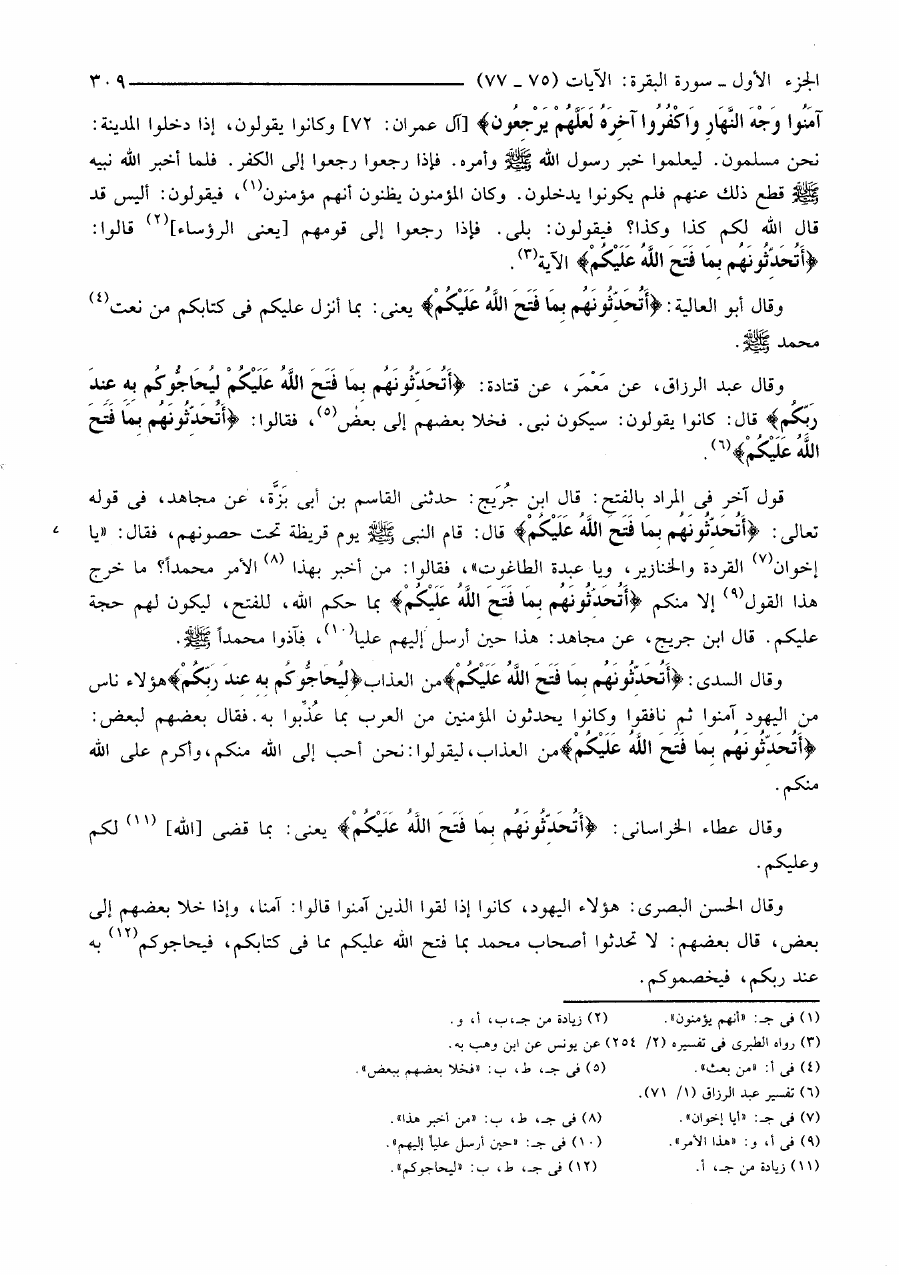 الجزء الأول ـ سورة البقرة: الآيات (٧٥ ـ ٧٧) ٣٠٩
آمَنُوا وَجْهَ النَّهَارِ وَاكْفُرُوا آخِرَهُ لَعَلَّهُمْ يَرْجِعُونَ﴾ [آل عمران: ٧٢] وكانوا يقولون، إذا دخلوا المدينة:
نحن مسلمون. ليعلموا خبر رسول الله ﷺ وأمره. فإذا رجعوا رجعوا إلى الكفر. فلما أخبر الله نبيه
ﷺ قطع ذلك عنهم فلم يكونوا يدخلون. وكان المؤمنون يظنون أنهم مؤمنون(١)، فيقولون: أليس قد
قال الله لكم كذا وكذا؟ فيقولون: بلى. فإذا رجعوا إلى قومهم [يعنى الرؤساء](٢) قالوا:
﴿أَتُحَدِّثُونَهُم بِمَا فَتَحَ اللَّهُ عَلَيْكُمْ﴾ الآية(٣).
وقال أبو العالية: ﴿أَتُحَدِّثُونَهُم بِمَا فَتَحَ اللَّهُ عَلَيْكُمْ﴾ يعنى: بما أنزل عليكم فى كتابكم من نعت(٤)
محمد ﷺ.
وقال عبد الرزاق، عن مَعْمَر، عن قتادة: ﴿أَتُحَدِّثُونَهُم بِمَا فَتَحَ اللَّهُ عَلَيْكُمْ لِيُحَاجُّوكُم بِهِ عِندَ
رَبِّكُمْ﴾ قال: كانوا يقولون: سيكون نبى. فخلا بعضهم إلى بعض(٥)، فقالوا: ﴿أَتُحَدِّثُونَهُم بِمَا فَتَحَ
اللَّهُ عَلَيْكُمْ﴾(٦).
قول آخر فى المراد بالفتح: قال ابن جُرَيج: حدثنى القاسم بن أبى بَزَّة، عن مجاهد، فى قوله
تعالى: ﴿أَتُحَدِّثُونَهُم بِمَا فَتَحَ اللَّهُ عَلَيْكُمْ﴾ قال: قام النبى ﷺ يوم قريظة تحت حصونهم، فقال: «يا
إخوان(٧) القردة والخنازير، ويا عبدة الطاغوت»، فقالوا: من أخبر بهذا(٨) الأمر محمداً؟ ما خرج
هذا القول(٩) إلا منكم ﴿أَتُحَدِّثُونَهُم بِمَا فَتَحَ اللَّهُ عَلَيْكُمْ﴾ بما حكم الله، للفتح، ليكون لهم حجة
عليكم. قال ابن جريج، عن مجاهد: هذا حين أرسل إليهم عليا(١٠)، فآذوا محمداً ﷺ.
وقال السدى: ﴿أَتُحَدِّثُونَهُم بِمَا فَتَحَ اللَّهُ عَلَيْكُمْ﴾ من العذاب ﴿لِيُحَاجُّوكُم بِهِ عِندَ رَبِّكُمْ﴾ هؤلاء ناس
من اليهود آمنوا ثم نافقوا وكانوا يحدثون المؤمنين من العرب بما عُذِّبوا به. فقال بعضهم لبعض:
﴿أَتُحَدِّثُونَهُم بِمَا فَتَحَ اللَّهُ عَلَيْكُمْ﴾ من العذاب، ليقولوا: نحن أحب إلى الله منكم، وأكرم على الله
منكم.
وقال عطاء الخراسانى: ﴿أَتُحَدِّثُونَهُم بِمَا فَتَحَ اللَّهُ عَلَيْكُمْ﴾ يعنى: بما قضى [الله](١١) لكم
وعليكم.
وقال الحسن البصرى: هؤلاء اليهود، كانوا إذا لقوا الذين آمنوا قالوا: آمنا، وإذا خلا بعضهم إلى
بعض، قال بعضهم: لا تحدثوا أصحاب محمد بما فتح الله عليكم مما فى كتابكم، فيحاجوكم(١٢) به
عند ربكم، فيخصموكم.
(١) فى جـ: «أنهم يؤمنون». (٢) زيادة من جـ، ب، أ، و.
(٣) رواه الطبرى فى تفسيره (٢/ ٢٥٤) عن يونس عن ابن وهب به.
(٤) فى أ: «من بعث». (٥) فى جـ، ط، ب: «فخلا بعضهم ببعض».
(٦) تفسير عبد الرزاق (١/ ٧١).
(٧) فى جـ: «أيا إخوان». (٨) فى جـ، ط، ب: «من أخبر هذا».
(٩) فى أ، و: «هذا الأمر». (١٠) فى جـ: «حين أرسل علياً إليهم».
(١١) زيادة من جـ، أ. (١٢) فى جـ، ط، ب: «ليحاجوكم».